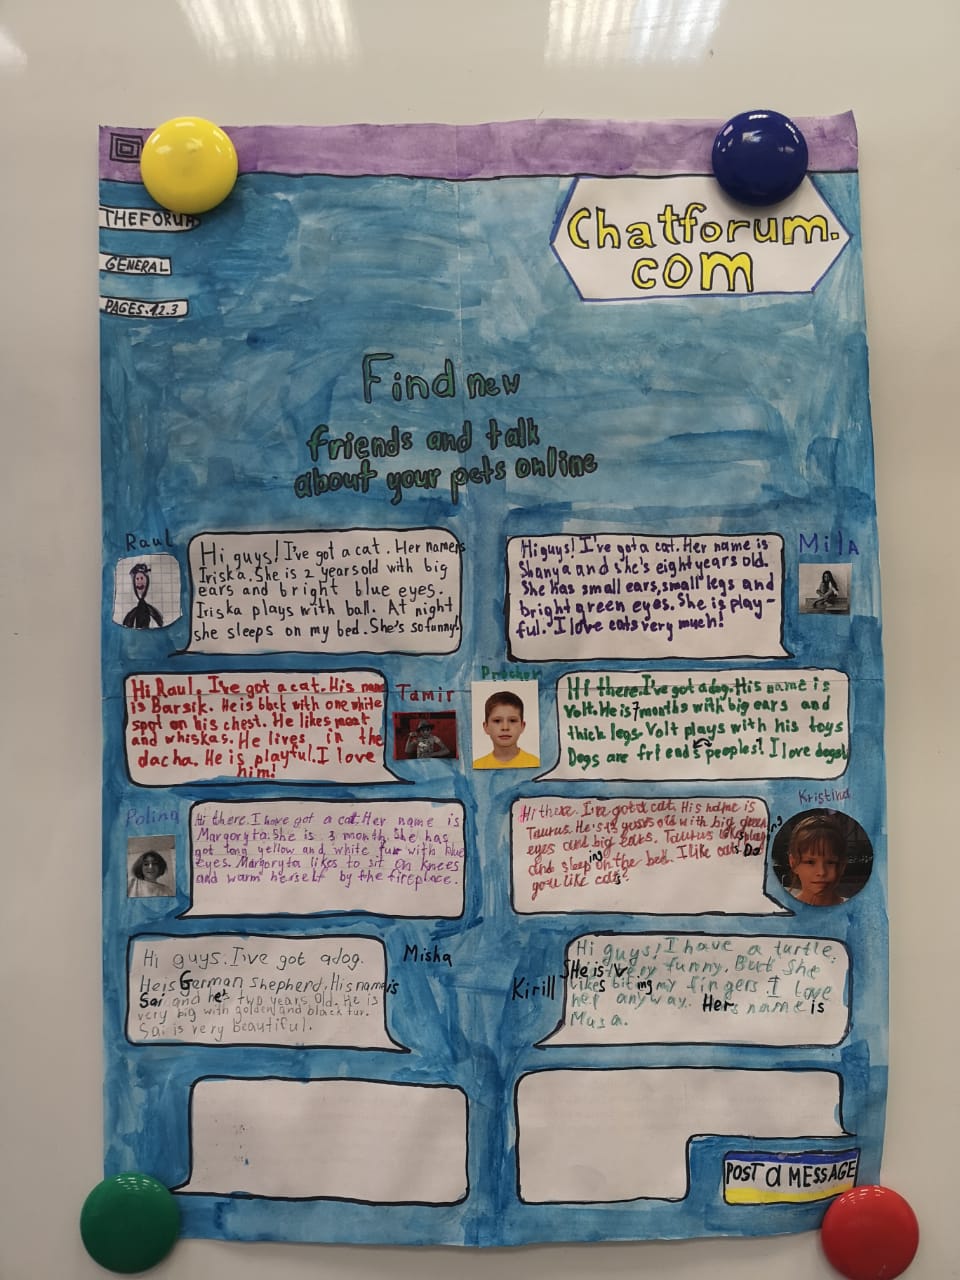 THE FORUM
GENERAL
PAGES.1.2.3
Chatforum.
com
Find new
friends and talk
about your pets online
Raul
Hi guys! I've got a cat. Her name is
Iriska. She is 2 years old with big
ears and bright blue eyes.
Iriska plays with ball. At night
she sleeps on my bed. She's so funny!
Mila
Hi guys! I've got a cat. Her name is
Shanya and she's eight years old.
She has small ears, small legs and
bright green eyes. She is play-
ful. I love cats very much!
Hi Raul. I've got a cat. His name
is Barsik. He is black with one white
spot on his chest. He likes meat
and whiskas. He lives in the
dacha. He is playful. I love
him!
Tamir
Prochor
Hi there. I've got a dog. His name is
Volt. He is 7 months with big ears and
thick legs. Volt plays with his toys
Dogs are friends peoples! I love dogs!
Polina
Hi there. I have got a cat. Her name is
Margoryta. She is 3 month. She has
got long yellow and white fur with blue
eyes. Margoryta likes to sit on knees
and warm herself by the fireplace.
Kristina
Hi there. I've got a cat. His name is
Taurus. He's 12 years old with big green
eyes and big ears. Taurus likes playing
and sleeping on the bed. I like cats. Do
you like cats?
Hi guys. I've got a dog.
He is German Shepherd. His name is
Sai and he's two years old. He is
very big with golden and black fur.
Sai is very beautiful.
Misha
Kirill
Hi guys! I have a turtle.
She is very funny. But she
likes biting my fingers. I love
her anyway. Her name is
Musa.
POST A MESSAGE